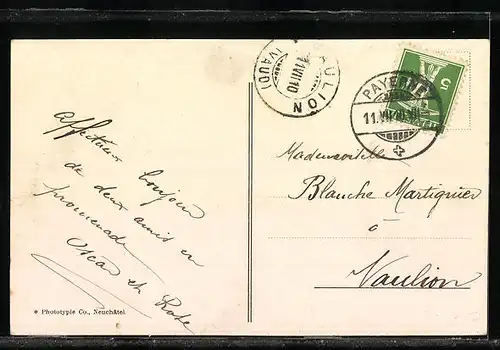 Affectueux bonjour
de deux amis en
promenade
Oscar et Rose
* Phototypie Co., Neuchâtel.
VAULION
11 VII 10
(VAUD)
PAYERNE
11.VII.10.VII
5
Mademoiselle
Blanche Martignier
à
Vaulion